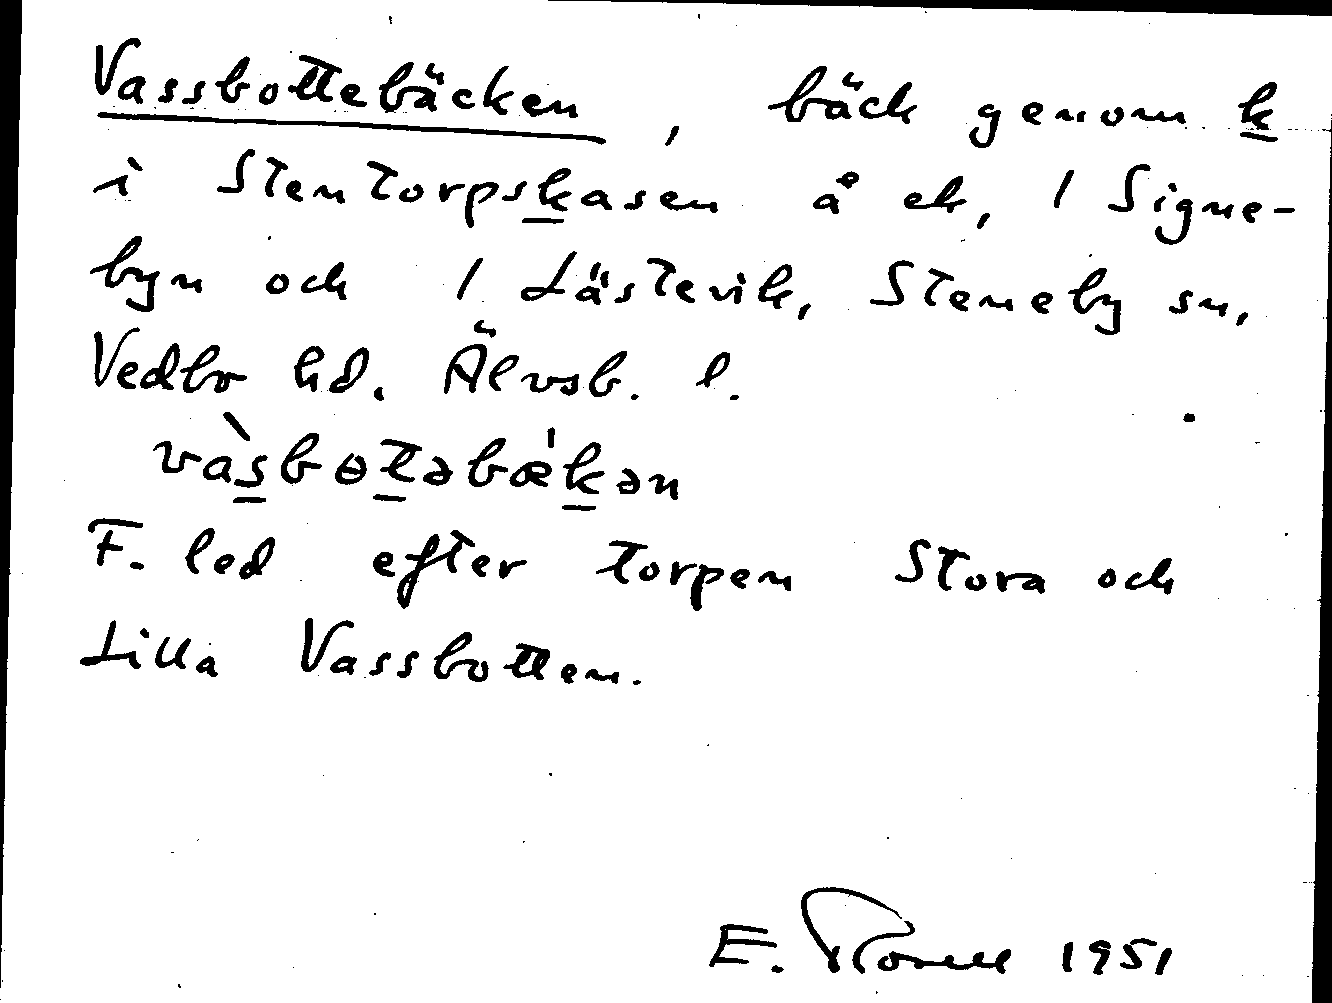 Vassbottebäcken, bäck genom k
i Stentorpskasen å ek, 1 Signe-
byn och 1 Lästevik, Steneby sn,
Vedbo hd. Älvsb. l.
vàsbɵtəbæ'kən
F. led efter torpen Stora och
Lilla Vassbotten.
E. Rosell 1951